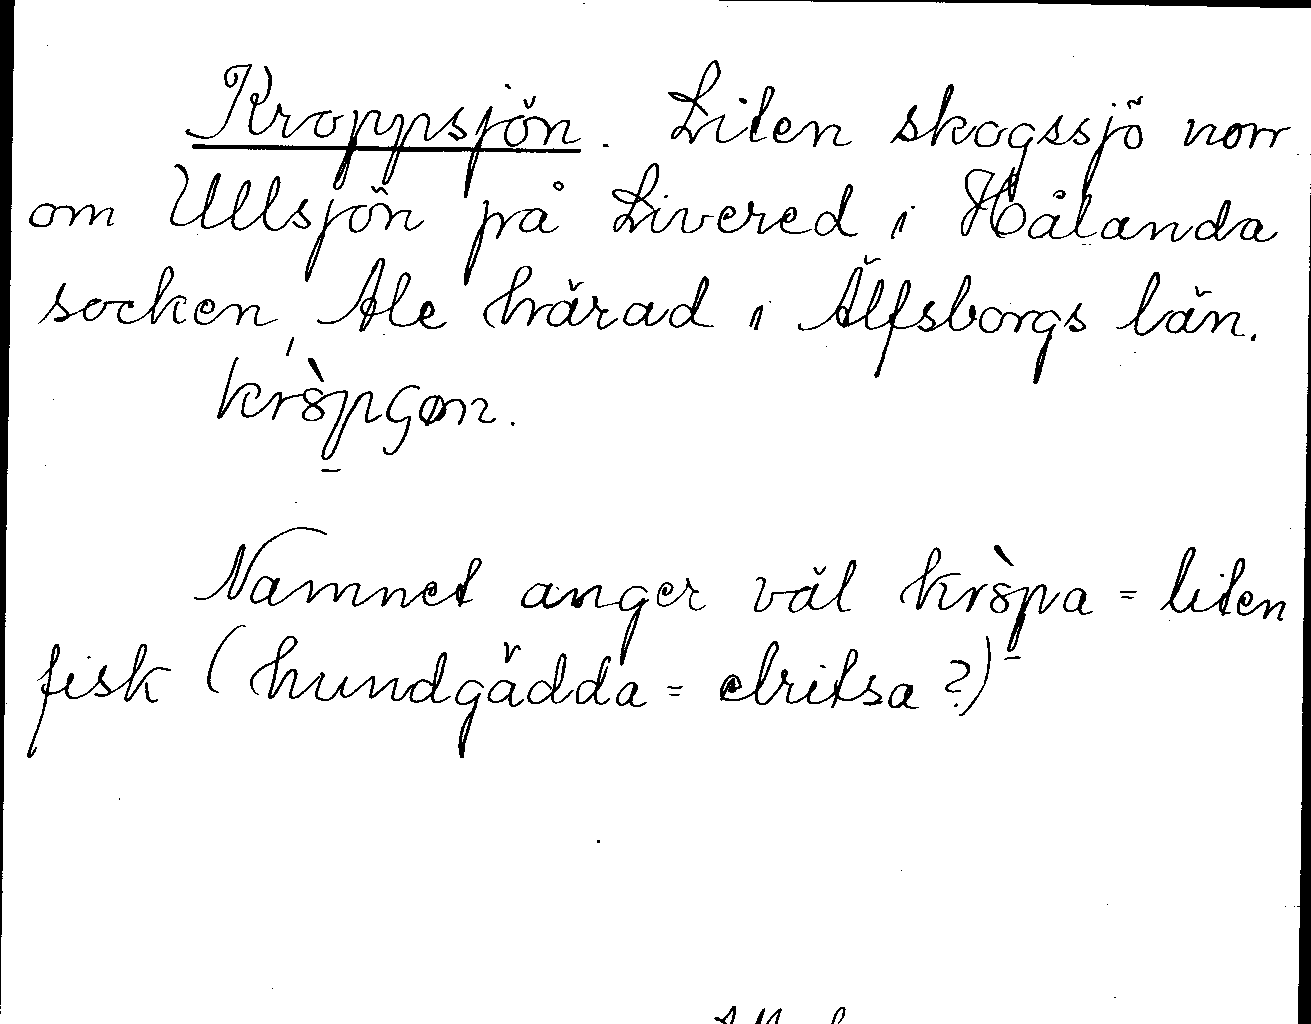 Kroppsjön. Liten skogssjö norr
om Ullsjön på Livered i Hålanda
socken, Ale härad i Älfsborgs län.
Namnet anger väl kròp̠a = liten
fisk (hundgädda = elritsa?)